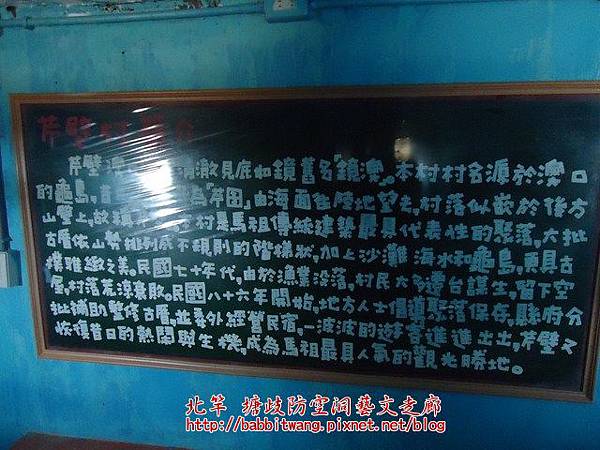 芹壁村簡介
芹壁澳 清澈見底如鏡舊名「鏡澳」。本村村名源於澳口
的龜島, 為「芹田」由海面往陸地望去,村落似嵌於後方
山壁上,故 村是馬祖傳統建築最具代表性的聚落,大批
古厝依山勢排列成不規則的階梯狀,加上沙灘海水和龜島,更具古
樸雅趣之美。民國七十年代,由於漁業没落,村民大多遷台謀生,留下空
屋,村落荒淳衰敗。民國八十六年開始,地方人士倡導聚落保存,縣府分
批補助整修古厝,並委外經營民宿,一波波的遊客進進出出,芹壁又
恢復昔日的熱鬧與生機,成為馬祖最具人氣的觀光勝地。
北竿 塘岐防空洞藝文走廊
http://babbitwang.pixnet.net/blog